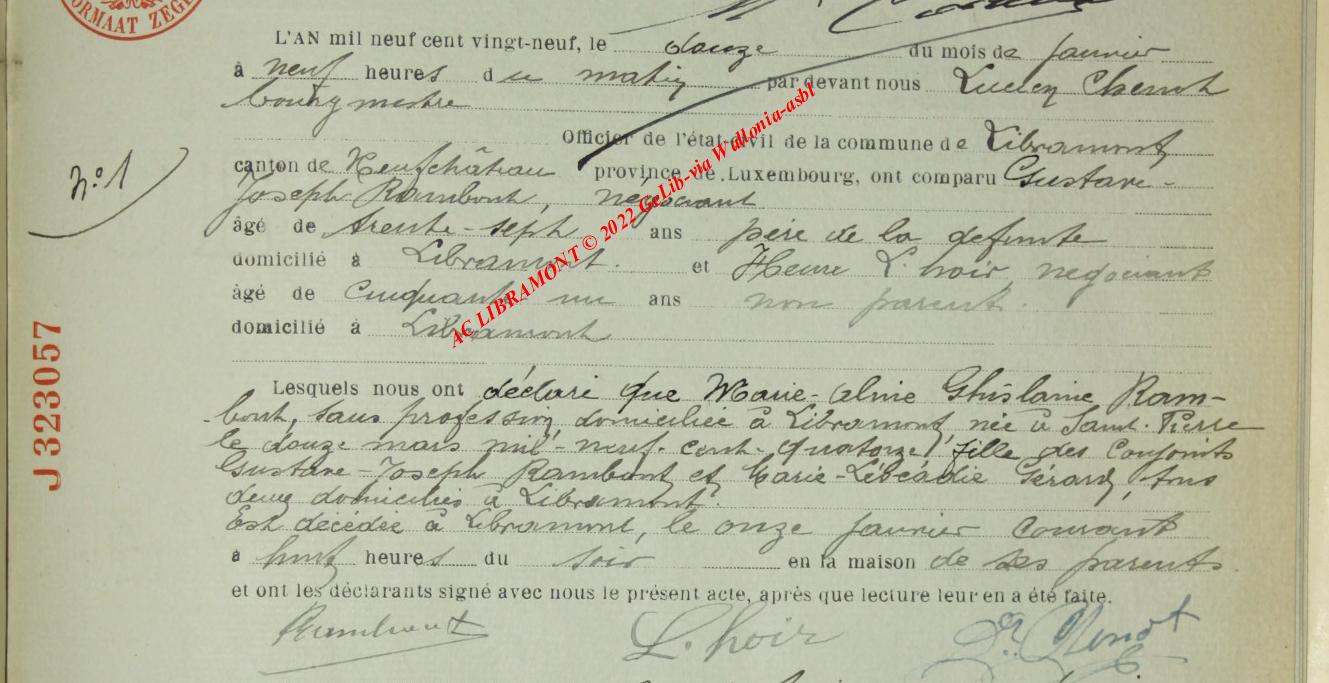 FORMAAT ZEGEL
L'AN mil neuf cent vingt-neuf, le douze du mois de janvier
à neuf heures du matin par devant nous Lucien Chenot
bourgmestre
Officier de l'état-civil de la commune de Libramont
canton de Neufchâteau province de Luxembourg, ont comparu Gustave-
Joseph Rambout, négociant
âgé de trente-sept ans père de la defunte
domicilié à Libramont. et L'hoir negociant
âgé de Cinquante un ans non parent.
domicilié à Libramont
n° 1
J 323057
AC LIBRAMONT © 2022 GeLib-via Wallonia-asbl
Lesquels nous ont déclaré que Marie-Aline Ghislaine Ram-
bout, sans profession, domiciliée à Libramont, née à Saint-Pierre
le douze mars mil-neuf-cent-quatorze, fille des Conjoints
Gustave-Joseph Rambout et Marie-Léocadie Gérard, tous
deux domiciliés à Libramont.
Est décédée à Libramont, le onze janvier courant
à huit heures du soir en la maison de ses parents
et ont les déclarants signé avec nous le présent acte, après que lecture leur en a été faite.
Rambout L'hoir Chenot